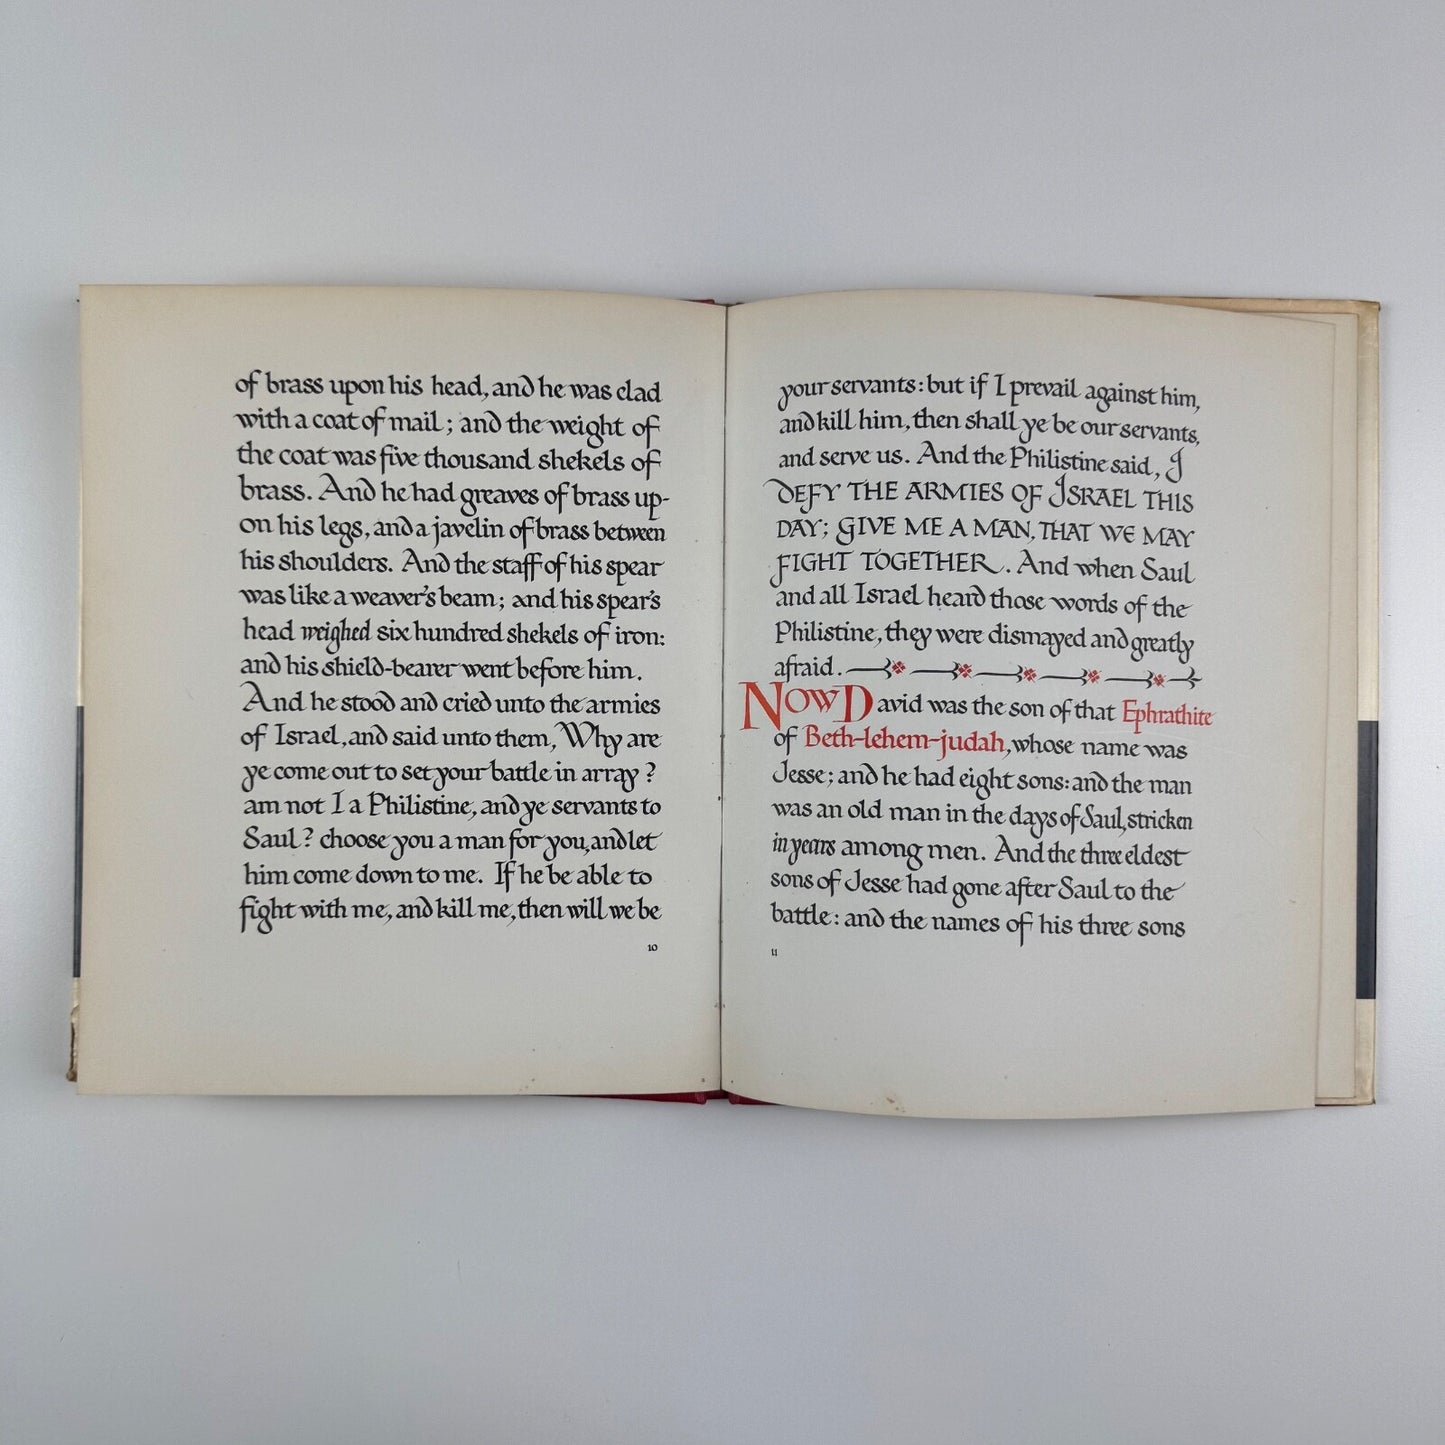 of brass upon his head, and he was clad
with a coat of mail; and the weight of
the coat was five thousand shekels of
brass. And he had greaves of brass up-
on his legs, and a javelin of brass between
his shoulders. And the staff of his spear
was like a weaver's beam; and his spear's
head weighed six hundred shekels of iron:
and his shield-bearer went before him.
And he stood and cried unto the armies
of Israel, and said unto them, Why are
ye come out to set your battle in array?
am not I a Philistine, and ye servants to
Saul? choose you a man for you, and let
him come down to me. If he be able to
fight with me, and kill me, then will we be
10
your servants: but if I prevail against him,
and kill him, then shall ye be our servants,
and serve us. And the Philistine said, I
DEFY THE ARMIES OF ISRAEL THIS
DAY; GIVE ME A MAN, THAT WE MAY
FIGHT TOGETHER. And when Saul
and all Israel heard those words of the
Philistine, they were dismayed and greatly
afraid.
NOW David was the son of that Ephrathite
of Beth-lehem-judah, whose name was
Jesse; and he had eight sons: and the man
was an old man in the days of Saul, stricken
in years among men. And the three eldest
sons of Jesse had gone after Saul to the
battle: and the names of his three sons
11